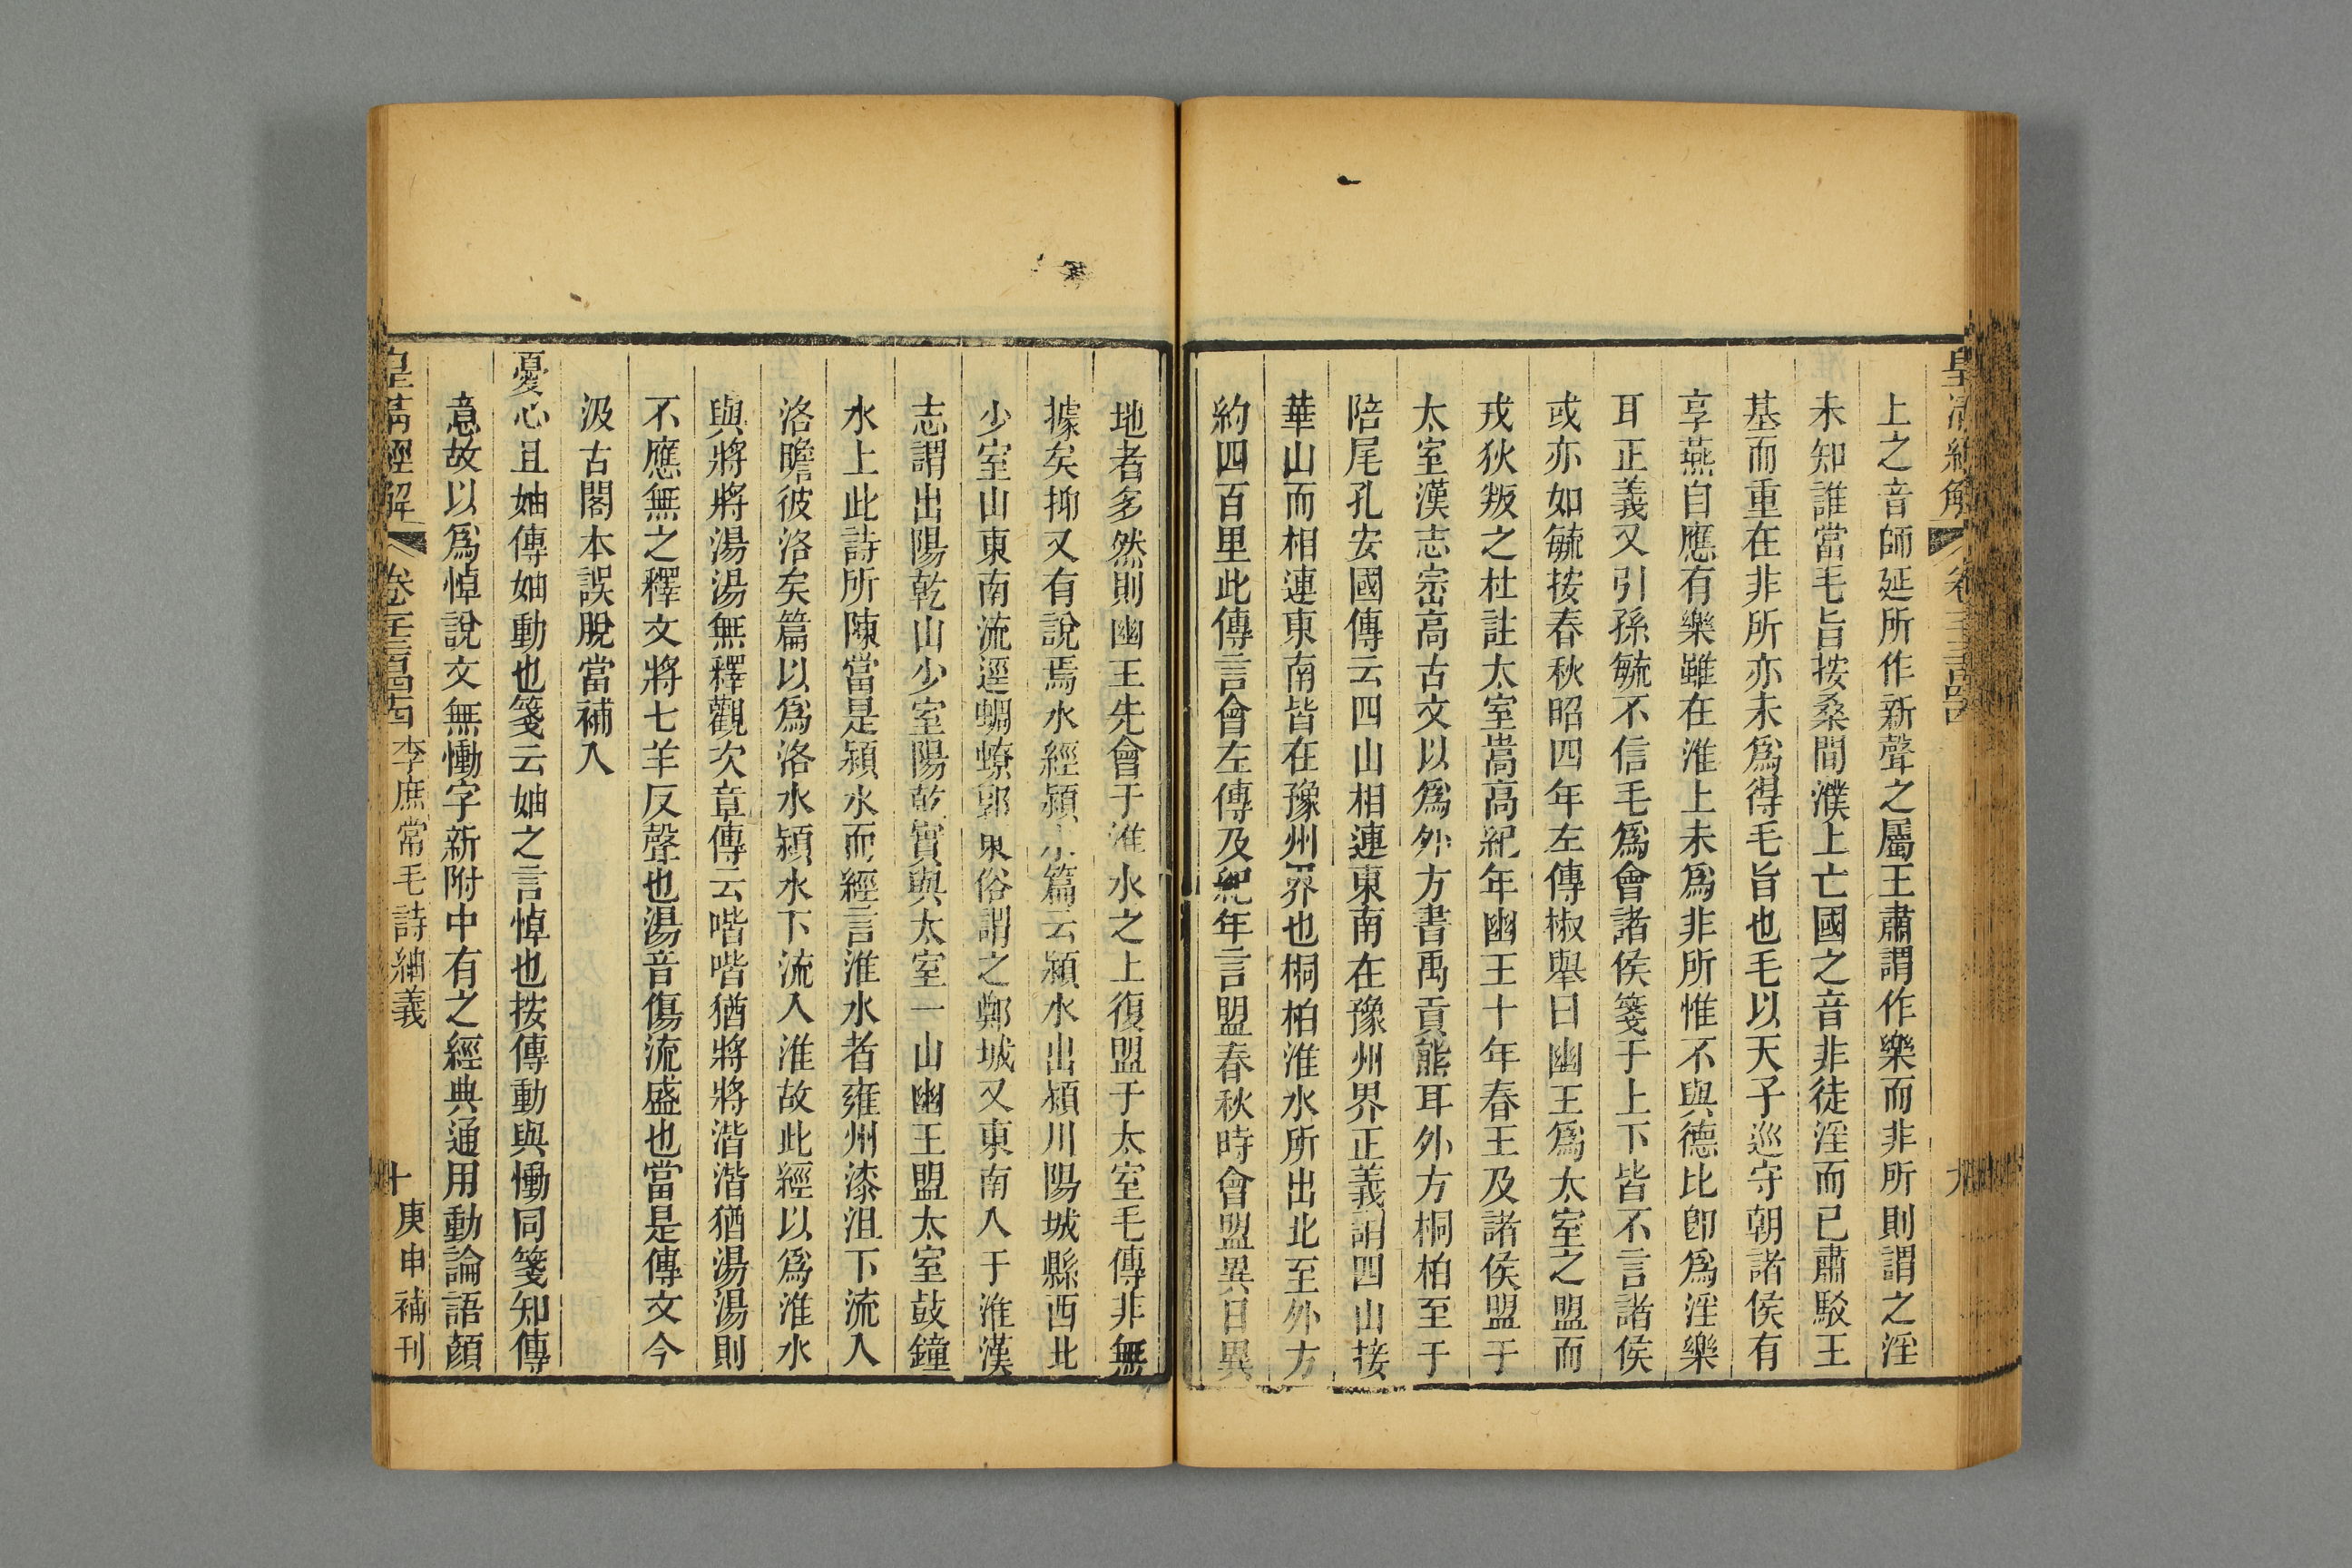 上之音師延所作新聲之屬王肅謂作樂而非所則謂之淫
未知誰當毛旨按桑間濮上亡國之音非徒淫而已肅駁王
基而重在非所亦未爲得毛旨也毛以天子巡守朝諸侯有
享燕自應有樂雖在淮上未爲非所惟不與德比卽爲淫樂
耳正義又引孫毓不信毛爲會諸侯箋于上下皆不言諸侯
或亦如毓按春秋昭四年左傳椒舉曰幽王爲太室之盟而
戎狄叛之杜註太室嵩高紀年幽王十年春王及諸侯盟于
太室漢志崈高古文以爲外方書禹貢熊耳外方桐柏至于
陪尾孔安國傳云四山相連東南在豫州界正義謂四山接
華山而相連東南皆在豫州界也桐柏淮水所出北至外方
約四百里此傳言會左傳及紀年言盟春秋時會盟異日異
地者多然則幽王先會于淮水之上復盟于太室毛傳非無
據矣抑又有說焉水經潁水篇云潁水出潁川陽城縣西北
少室山東南流逕蜩蟟郭東俗謂之鄭城又東南入于淮漢
志謂出陽乾山少室陽乾實與太室一山幽王盟太室鼓鐘
水上此詩所陳當是潁水而經言淮水者雍州漆沮下流入
洛瞻彼洛矣篇以爲洛水潁水下流入淮故此經以爲淮水
與將將湯湯無釋觀次章傳云喈喈猶將將湝湝猶湯湯則
不應無之釋文將七羊反聲也湯音傷流盛也當是傳文今
汲古閣本誤脫當補入
憂心且妯傳妯動也箋云妯之言悼也按傳動與慟同箋知傳
意故以爲悼說文無慟字新附中有之經典通用動論語顏
皇清經解 卷 李庶常毛詩紬義 十 庚申補刊